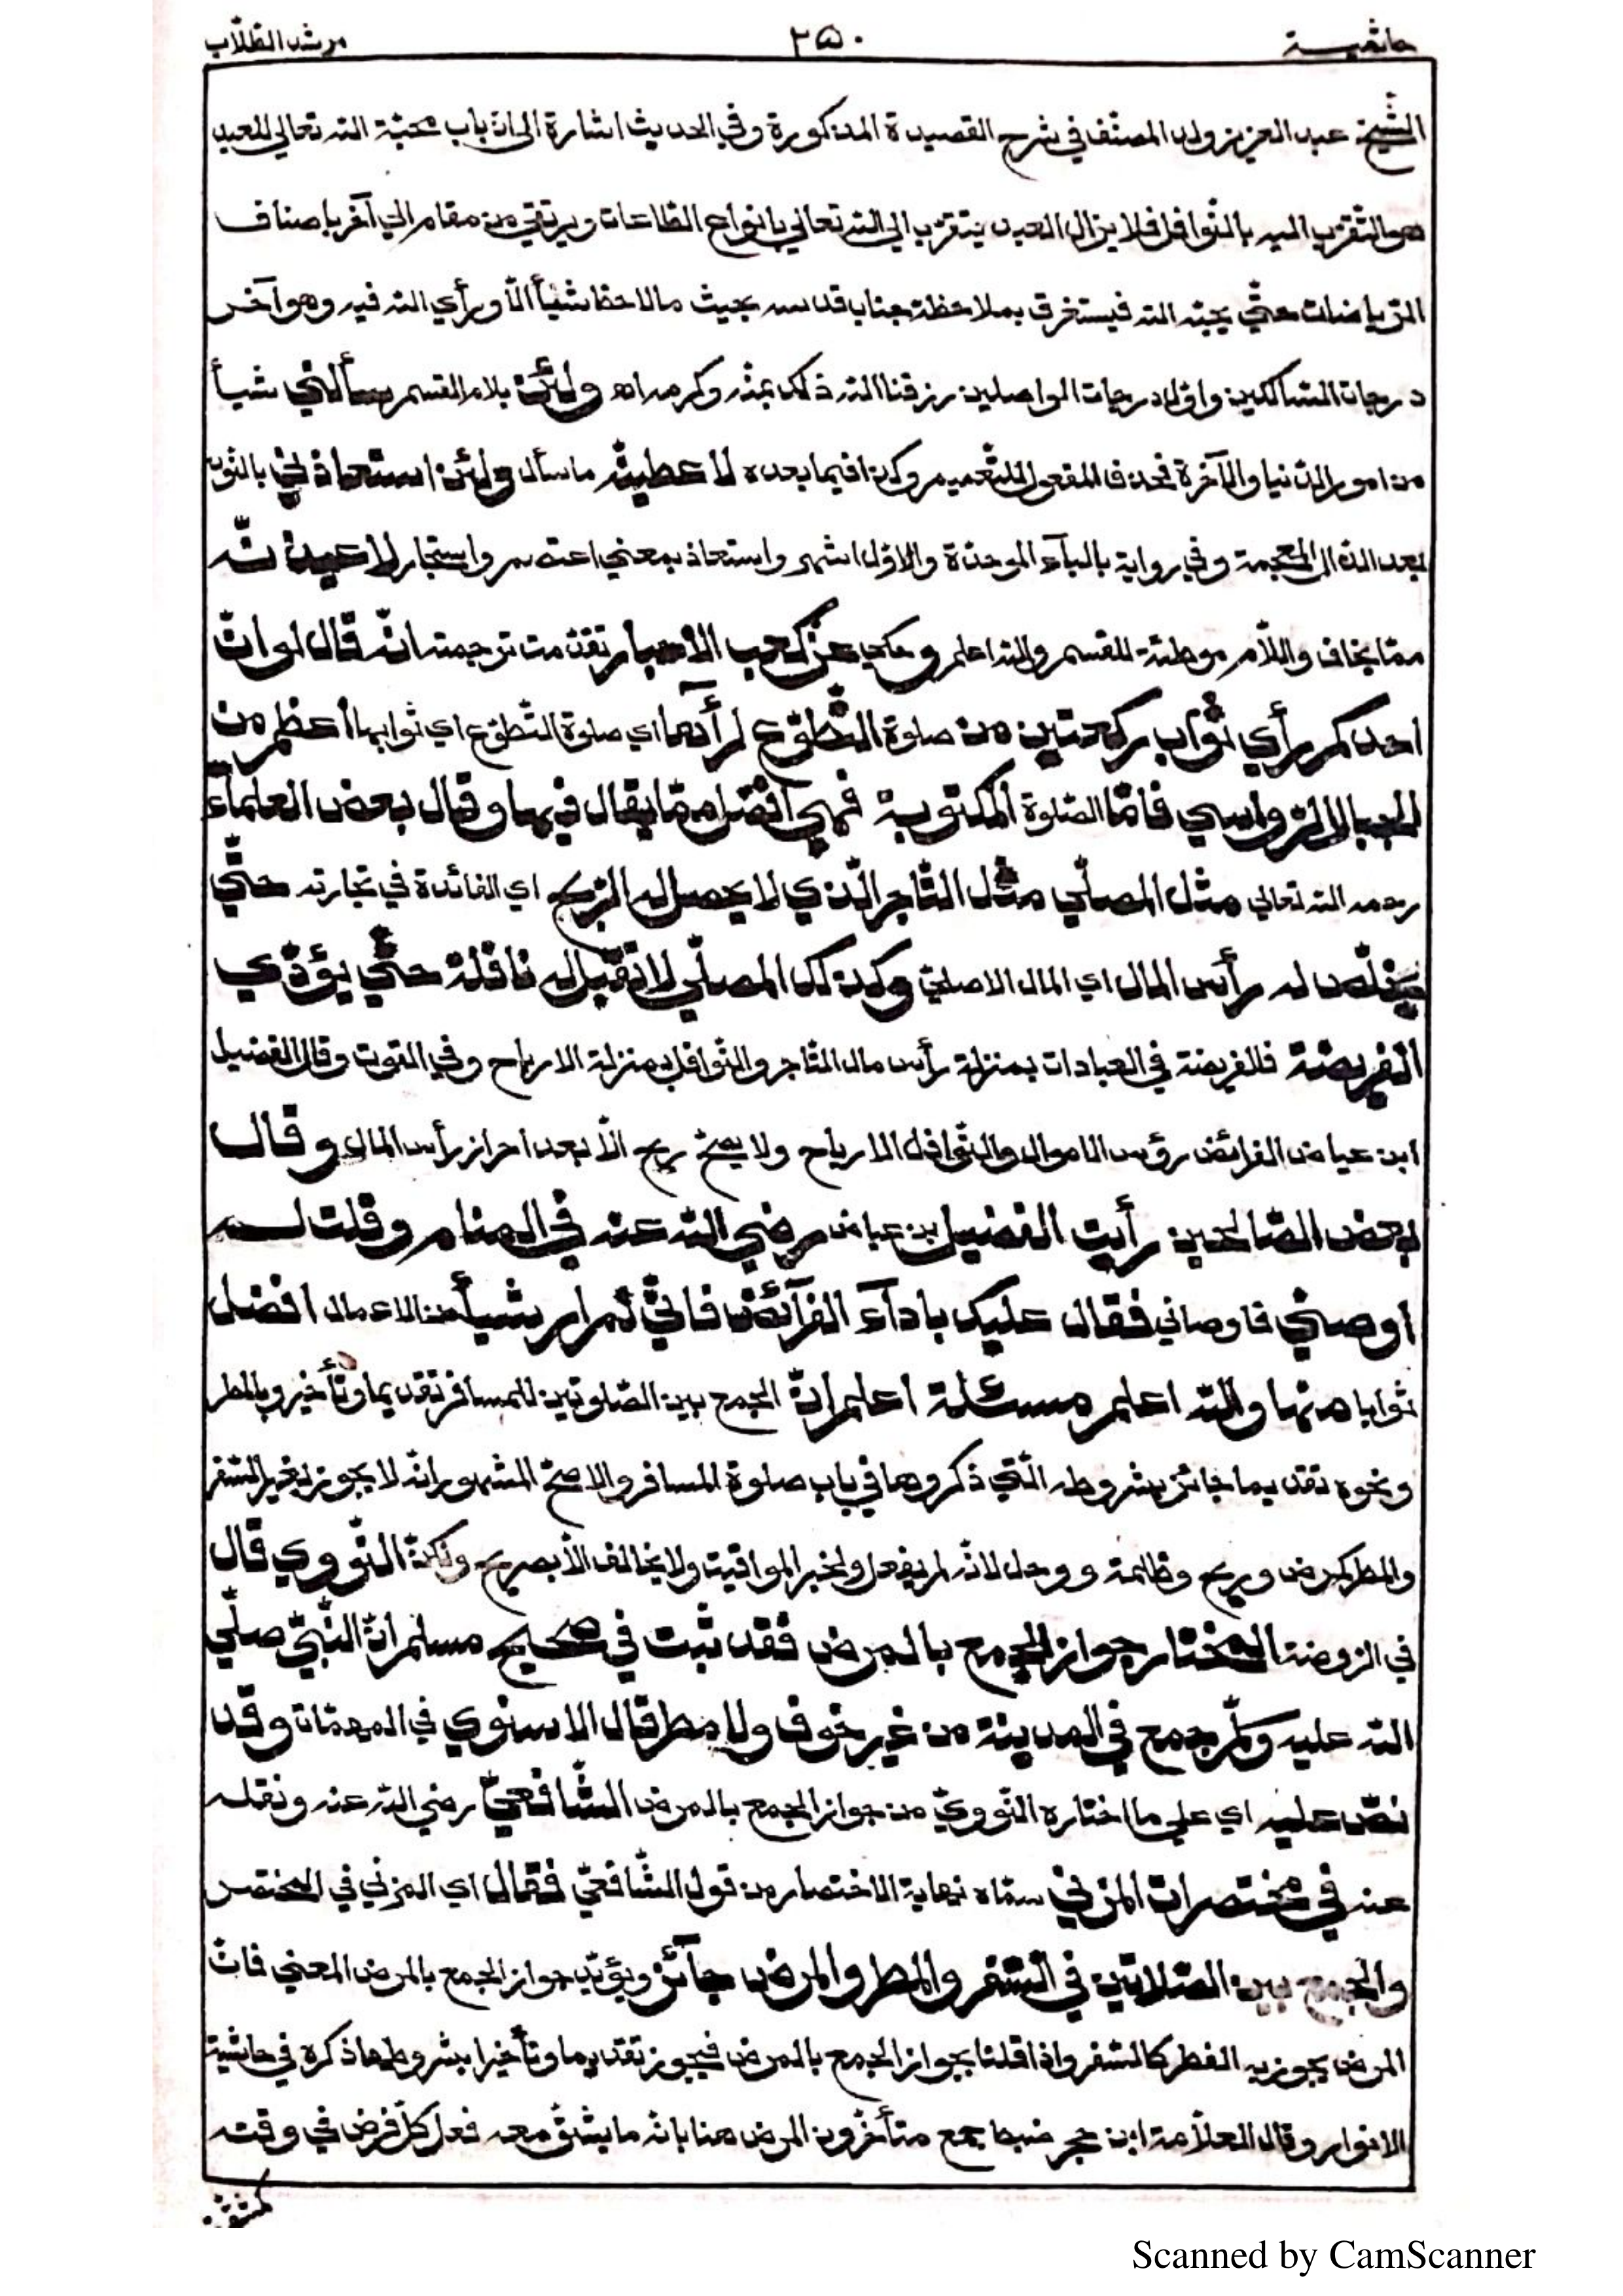 حاشية
٢٥٠
مرشد الطلاب
الشيخ عبد العزيز ولد المصنف في شرح القصيدة المذكورة وفي الحديث اشارة الى انّ باب محبّة الله تعالي للعبد
هو التّقرّب اليه بالنّوافل فلا يزال العبد يتقرّب الي الله تعالي بانواع الطّاعات ويرتقي من مقام الي آخر باصناف
الرّياضات حتّي يحبّه الله فيستغرق بملاحظة جناب قدسه بحيث ما لاحظ شيئاً الّا ورأي الله فيه وهو آخر
درجات السّالكين واوّل درجات الواصلين رزقنا الله ذلك بمنّه وكرمه اه ولئن بلام القسم سألني شيأ
من امور الدّنيا والآخرة فحذف المفعول للتّعميم وكذا فيما بعده لاعطينّه ما سأل ولئن استعاذني بالنّون
بعد الذال المعجمة وفي رواية بالبآء الموحّدة والاوّل اشهر واستعاذ بمعني اعتصم واستجار لاعيذنّه
ممّا يخاف واللّام موطئة للقسم والله اعلم وحكي عن كعب الاحبار تقدّمت ترجمته انّه قال لو انّ
احدكم رأي ثواب ركعتين من صلوة التّطوّع لرآها اي صلوة التّطوّع اي ثوابها أعظم من
الجبال الرّواسي فامّا الصّلوة المكتوبة فهي افضل ممّا يقال فيها وقال بعض العلمآء
رحمه الله تعالي مثل المصلّي مثل التّاجر الّذي لا يحصل له الرّبح اي الفائدة في تجارته حتّي
يخلّص له رأس المال اي المال الاصليّ وكذلك المصلّي لا تقبل له نافلة حتّي يؤدّي
الفريضة فالفريضة في العبادات بمنزلة رأس مال التّاجر والنّوافل بمنزلة الارباح وفي القوت وقال الفضيل
ابن عياض الفرائض رؤس الاموال والنّوافل الارباح ولا يصحّ ربح الّا بعد احراز رأس المال وقال
بعض الصّالحين رأيت الفضيل بن عياض رضي الله عنه في المنام وقلت له
أوصني فاوصاني فقال عليك بادآء الفرآئض فانّي لم ار شيأ من الاعمال افضل
ثوابا منها والله اعلم مسئلة اعلم انّ الجمع بين الصّلوتين للمسافر تقديما وتأخير وبالمطر
ونحوه تقديما جائز بشروطه الّتي ذكروها في باب صلوة المسافر والاصحّ المشهور انّه لا يجوز بغير السّفر
والمطر كمرض وريح وظلمة ووحل لانّه لم يفعل ولخبر المواقيت ولا يخالف الّا بصريح ولكنّ النّووي قال
في الرّوضة المختار جواز الجمع بالمرض فقد ثبت في صحيح مسلم انّ النّبيّ صلّي
الله عليه وسلّم جمع في المدينة من غير خوف ولا مطر قال الاسنوي في المهمّات وقد
نصّ عليه اي علي ما اختاره النّوويّ من جواز الجمع بالمرض الشّافعيّ رضي الله عنه ونقله
عنه في مختصرات المزني سمّاه نهاية الاختصار من قول الشّافعيّ فقال اي المزني في المختصر
والجمع بين الصّلاتين في السّفر والمطر والمرض جآئز ويؤيّد جواز الجمع بالمرض المعني فانّ
المرض يجوز به الفطر كالسّفر واذا قلنا بجواز الجمع بالمرض فيجوز تقديما وتأخيرا بشروطها ذكره في حاشية
الانوار وقال العلّامة ابن حجر ضبط جمع متأخّرون المرض هنا بانّه ما يشقّ معه فعل كلّ فرض في وقته
كمشقّة
Scanned by CamScanner